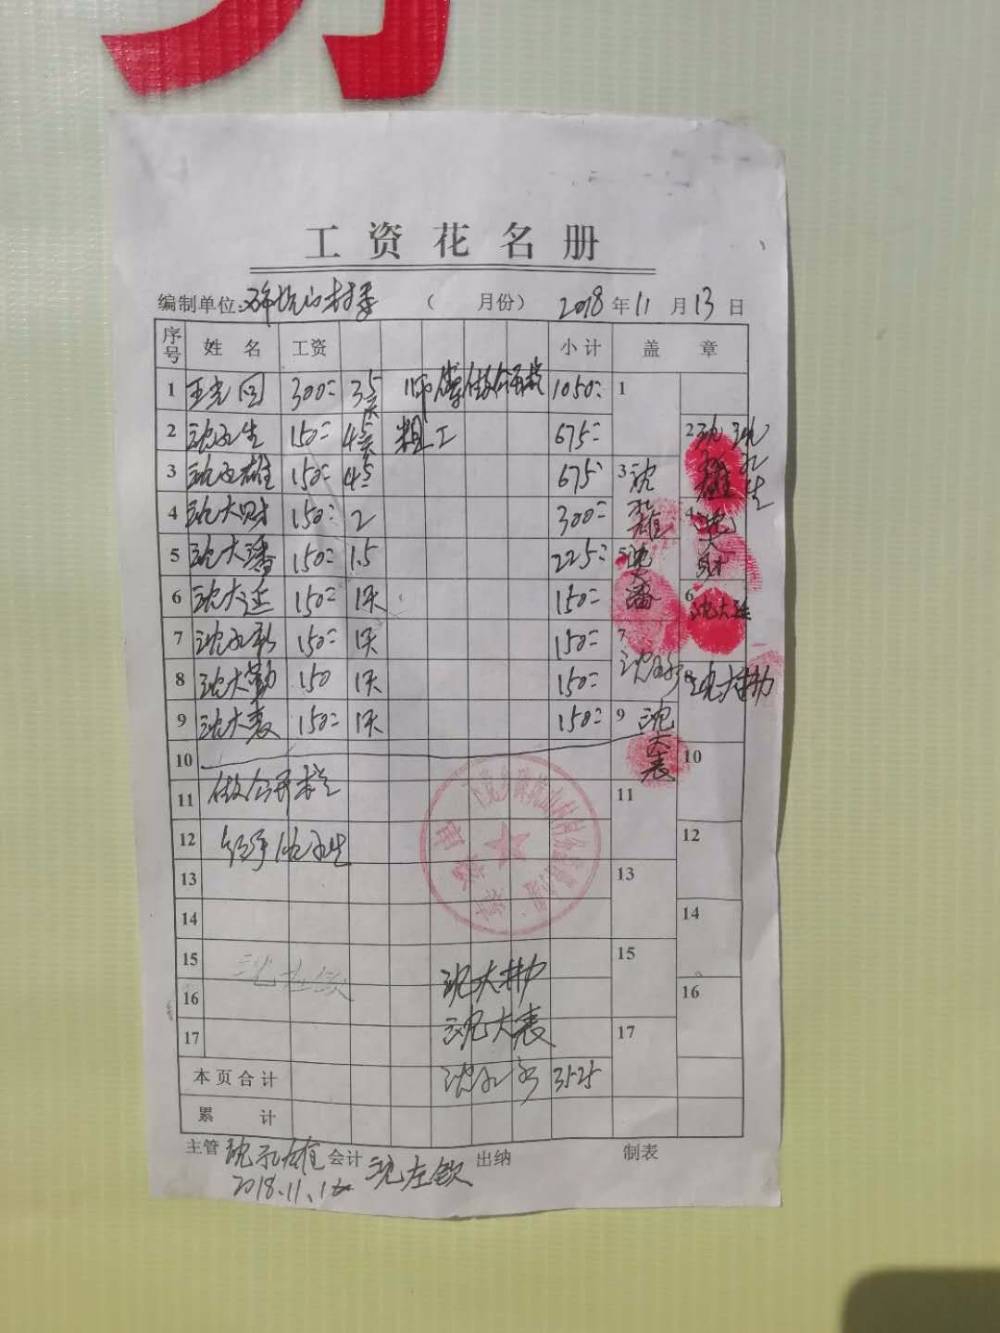 工资花名册
编制单位: 村委 ( 月份) 2018年11月13日
序号 姓名 工资 小计 盖章
1 王 300= 3.5天 师傅做公开栏 1050=
2 沈孔生 150= 4.5天 粗工 675=
3 沈孔雄 150= 4.5 675=
4 沈大财 150= 2 300=
5 沈大潘 150= 1.5 225=
6 沈大延 150= 1天 150=
7 沈孔彩 150= 1天 150=
8 沈大勤 150 1天 150=
9 沈大表 150= 1天 150=
1
2 沈孔生
3 沈孔雄
4 沈大财
5 沈大潘
6 沈大延
7 沈孔彩
8 沈大勤
9 沈大表
10 10
11 做公开栏 11
12 经手 沈孔生 12
13 13
14 14
15 沈左钦 15
16 沈大勤 16
17 沈大表 17
本页合计 沈孔 3525
累计
主管 沈孔雄 会计 沈左钦 出纳 制表
2018.11.